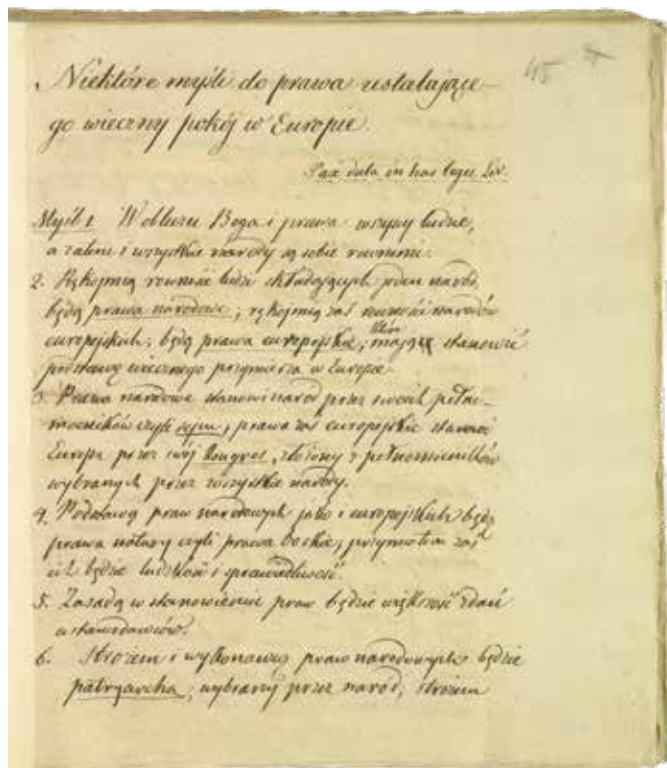 45
Niektóre myśli do prawa ustalające-
go wieczny pokój w Europie.
Pax data in has leges. Liv.
Myśl 1 W obliczu Boga i prawa wszyscy ludzie,
a zatem i wszystkie narody są sobie równemi.
2. Rękojmią równości ludzi składających jeden naród,
będą prawa narodowe; rękojmią zaś równości narodów
europejskich, będą prawa europejskie, mające stanowić
podstawę wiecznego przymierza w Europie.
3. Prawa narodowe stanowi naród przez swoich pełno-
mocników czyli sejm, prawa zaś europejskie stanowi
Europa przez swój Kongres, złożony z pełnomocników
wybranych przez wszystkie narody.
4. Podstawą praw narodowych jako i europejskich będą
prawa natury czyli prawa boskie, przymiotem zaś
ich będzie ludzkość i sprawiedliwość.
5. Zasadą w stanowieniu praw będzie większość zdań
ustawodawców.
6. Stróżem i wykonawcą praw narodowych będzie
patryarcha, wybrany przez naród, stróżem